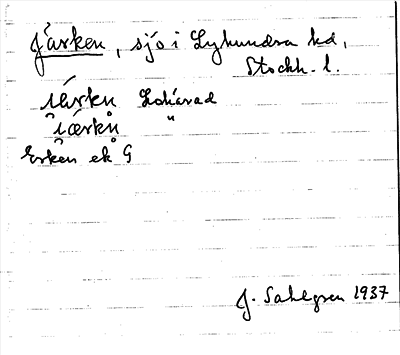 Järken, sjö i Lyhundra hd,
Stockh. l.
iärkn Lohärad
iærkn "
Erken ek G
J. Sahlgren 1937